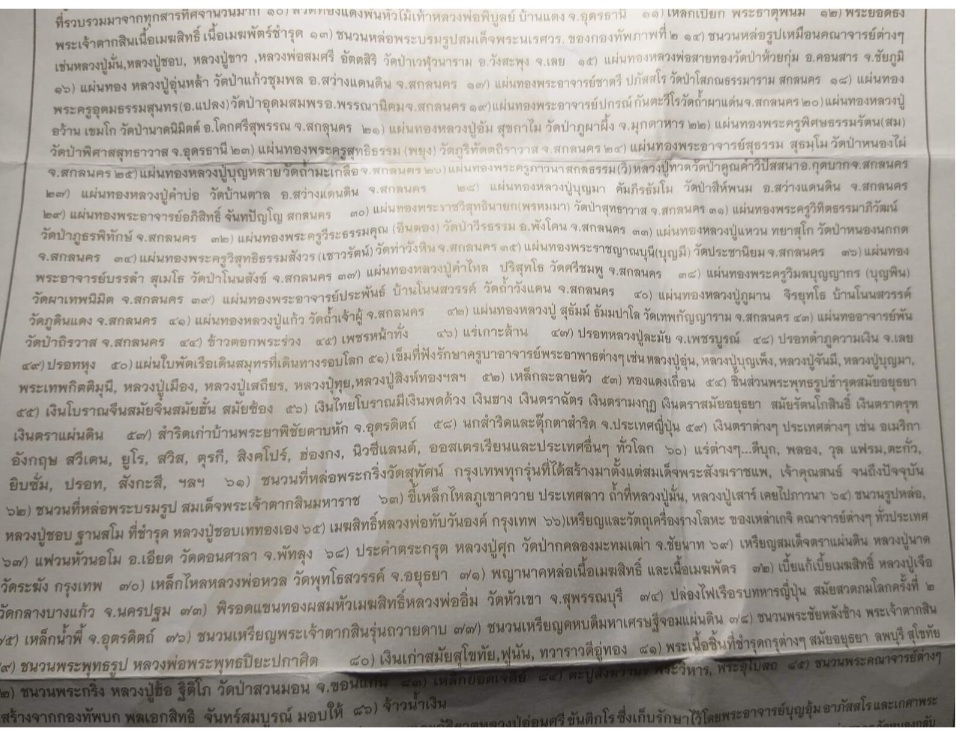 ที่รวบรวมมาจากทุกสารทิศจำนวนมาก ๑๐) ลวดทองแดงพันหัวไม้เท้าหลวงพ่อพิบูลย์ บ้านแดง จ.อุดรธานี ๑๑) เหล็กเปียก พระธาตุพนม ๑๒) พระยอดธง
พระเจ้าตากสินเนื้อเมฆสิทธิ์ เนื้อเมฆพัตร์ชำรุด ๑๓) ชนวนหล่อพระบรมรูปสมเด็จพระนเรศวร. ของกองทัพภาพที่ ๒ ๑๔) ชนวนหล่อรูปเหมือนคณาจารย์ต่างๆ
เช่นหลวงปู่มั่น,หลวงปู่ชอบ, หลวงปู่ขาว ,หลวงพ่อสมศรี อัตตสิริ วัดป่าเวฬุวนาราม อ.วังสะพุง จ.เลย ๑๕) แผ่นทองหลวงพ่อสายทองวัดป่าห้วยกุ่ม อ.คอนสาร จ.ชัยภูมิ
๑๖) แผ่นทอง หลวงปู่อุ่นหล้า วัดป่าแก้วชุมพล อ.สว่างแดนดิน จ.สกลนคร ๑๗) แผ่นทองพระอาจารย์ชาตรี ปภัสสโร วัดป่าโสภณธรรมาราม สกลนคร ๑๘) แผ่นทอง
พระครูอุดมธรรมสุนทร(อ.แปลง)วัดป่าอุดมสมพร อ.พรรณานิคม จ.สกลนคร ๑๙)แผ่นทองพระอาจารย์ปกรณ์ กันตะวีโรวัดถ้ำผาแด่น จ.สกลนคร ๒๐)แผ่นทองหลวงปู่
อว้าน เขมโก วัดป่านาคนิมิตต์ อ.โคกศรีสุพรรณ จ.สกลนคร ๒๑) แผ่นทองหลวงปู่อัม สุขกาโม วัดป่าภูผาผึ้ง จ.มุกดาหาร ๒๒) แผ่นทองพระครูพิศธรรมรัตน(สม)
วัดป่าพิศาสสุทธาวาส จ.อุดรธานี ๒๓) แผ่นทองพระครูสุทธิธรรม (พยุง) วัดภูริทัตตถิราวาส จ.สกลนคร ๒๔) แผ่นทองพระอาจารย์สุธรรม สุธมฺโม วัดป่าหนองไผ่
จ.สกลนคร ๒๕)แผ่นทองหลวงปู่บุญหลาย วัดถ้ำมะเกลือ จ.สกลนคร ๒๖)แผ่นทองพระครูภาวนาสกลธรรม(วิ)หลวงปู่ทวดวัดป่าคูณคำวิปัสสนา อ.กุดบาก จ.สกลนคร
๒๗) แผ่นทองหลวงปู่คำบ่อ วัดบ้านตาล อ.สว่างแดนดิน จ.สกลนคร ๒๘) แผ่นทองหลวงปู่บุญมา คัมภีรธัมโม วัดป่าสีห์พนม อ.สว่างแดนดิน จ.สกลนคร
๒๙) แผ่นทองพระอาจารย์อภิสิทธิ์ จันทปัญโญ สกลนคร ๓๐) แผ่นทองพระราชวิสุทธินายก(พรหมมา) วัดป่าสุทธาวาส จ.สกลนคร ๓๑) แผ่นทองพระครูวิทิตธรรมาภิวัฒน์
วัดป่าภูธรพิทักษ์ จ.สกลนคร ๓๒) แผ่นทองพระครูวีระธรรมคุณ (อินตอง) วัดป่าวีรธรรม อ.พังโคน จ.สกลนคร ๓๓) แผ่นทองหลวงปู่แหวน ทยาสุโก วัดป่าหนองนกกด
จ.สกลนคร ๓๔) แผ่นทองพระครูวิสุทธิธรรมสังวร (เชาวรัตน์) วัดท่าวังหิน จ.สกลนคร ๓๕) แผ่นทองพระราชญาณมุนี(บุญมี) วัดประชานิยม จ.สกลนคร ๓๖) แผ่นทอง
พระอาจารย์บรรลำ สุเมโธ วัดป่าโนนสังข์ จ.สกลนคร ๓๗) แผ่นทองหลวงปู่คำไหล ปริสุทโธ วัดศรีชมพู จ.สกลนคร ๓๘) แผ่นทองพระครูวิมลบุญญากร (บุญพิน)
วัดผาเทพนิมิต จ.สกลนคร ๓๙) แผ่นทองพระอาจารย์ประพันธ์ บ้านโนนสวรรค์ วัดถ้ำวังแคน จ.สกลนคร ๔๐) แผ่นทองหลวงปู่ภูผาน จิรยุทโธ บ้านโนนสวรรค์
วัดภูดินแดง จ.สกลนคร ๔๑) แผ่นทองหลวงปู่แก้ว วัดถ้ำเจ้าผู้ จ.สกลนคร ๔๒) แผ่นทองหลวงปู่ สุธัมม์ ธัมมปาโล วัดเทพกัญญาราม จ.สกลนคร ๔๓) แผ่นทออาจารย์พัน
วัดป่าถิรวาส จ.สกลนคร ๔๔) ข้าวตอกพระร่วง ๔๕) เพชรหน้าทั่ง ๔๖) แร่เกาะล้าน ๔๗) ปรอทหลวงปู่ละมัย จ.เพชรบูรณ์ ๔๘) ปรอทดำภูความเงิน จ.เลย
๔๙)ปรอทหุง ๕๐) แผ่นใบพัดเรือเดินสมุทรที่เดินทางรอบโลก ๕๑) เข็มที่ฝังรักษาครูบาอาจารย์พระอาพาธต่างๆ เช่น หลวงปู่อุ่น, หลวงปู่บุญเพ็ง, หลวงปู่จันมี, หลวงปู่บุญมา,
พระเทพกิตติมุนี, หลวงปู่เมือง, หลวงปู่เสถียร, หลวงปู่ทุย,หลวงปู่สิงห์ทองฯลฯ ๕๒) เหล็กละลายตัว ๕๓) ทองแดงเถื่อน ๕๔) ชิ้นส่วนพระพุทธรูปชำรุดสมัยอยุธยา
๕๕) เงินโบราณจีนสมัยจีนสมัยฮั่น สมัยซ้อง ๕๖) เงินไทยโบราณมีเงินพดด้วง เงินฮาง เงินตราฉัตร เงินตรามงกุฎ เงินตราสมัยอยุธยา สมัยรัตนโกสินธิ์ เงินตราครุฑ
เงินตราแผ่นดิน ๕๗) สำริดเก่าบ้านพระยาพิชัยดาบหัก จ.อุตรดิตถ์ ๕๘) นกสำริดและตุ๊กตาสำริด จ.ประเทศญี่ปุ่น ๕๙) เงินตราต่างๆ ประเทศต่างๆ เช่น อเมริกา
อังกฤษ สวีเดน, ยูโร, สวิส, ตุรกี, สิงคโปร์, ฮ่องกง, นิวซีแลนด์, ออสเตรเรียนและประเทศอื่นๆ ทั่วโลก ๖๐) แร่ต่างๆ...ดีบุก, พลอง, วุล แฟรม,ตะกั่ว,
ยิบซั่ม, ปรอท, สังกะสี, ฯลฯ ๖๑) ชนวนที่หล่อพระกริ่งวัดสุทัศน์ กรุงเทพทุกรุ่นที่ได้สร้างมาตั้งแต่สมเด็จพระสังฆราชแพ, เจ้าคุณสนธ์ จนถึงปัจจุบัน
๖๒) ชนวนที่หล่อพระบรมรูป สมเด็จพระเจ้าตากสินมหาราช ๖๓) ขี้เหล็กไหลภูเขาควาย ประเทศลาว ถ้ำที่หลวงปู่มั่น, หลวงปู่เสาร์ เคยไปภาวนา ๖๔) ชนวนรูปหล่อ,
หลวงปู่ชอบ ฐานสโม ที่ชำรุด หลวงปู่ชอบเททองเอง ๖๕) เมฆสิทธิ์หลวงพ่อทับวันองค์ กรุงเทพ ๖๖)เหรียญและวัตถุเครื่องรางโลหะ ของเหล่าเกจิ คณาจารย์ต่างๆ ทั่วประเทศ
๖๗) แฟวนหัวนอโม อ.เอียด วัดดอนศาลา จ.พัทลุง ๖๘) ประคำตระกรุต หลวงปู่ศุก วัดปากคลองมะทมเฒ่า จ.ชัยนาท ๖๙) เหรียญสมเด็จตราแผ่นดิน หลวงปู่นาค
วัดระฆัง กรุงเทพ ๗๐) เหล็กไหลหลวงพ่อหวล วัดพุทโธสวรรค์ จ.อยุธยา ๗๑) พญานาคหล่อเนื้อเมฆสิทธิ์ และเนื้อเมฆพัตร ๗๒) เบี้ยแก้เบี้ยเมฆสิทธิ์ หลวงปู่เจือ
วัดกลางบางแก้ว จ.นครปฐม ๗๓) พิรอดแขนทองผสมหัวเมฆสิทธิ์หลวงพ่ออิ่ม วัดหัวเขา จ.สุพรรณบุรี ๗๔) ปล่องไฟเรือรบทหารญี่ปุ่น สมัยสงคมโลกครั้งที่ ๒
๗๕) เหล็กน้ำพี้ จ.อุตรดิตถ์ ๗๖) ชนวนเหรียญพระเจ้าตากสินรุ่นถวายดาบ ๗๗) ชนวนเหรียญคหบดีมหาเศรษฐีจอมแผ่นดิน ๗๘) ชนวนพระชัยหลังช้าง พระเจ้าตากสิน
๗๙) ชนวนพระพุทธรูป หลวงพ่อพระพุทธปิยะปกาศิต ๘๐) เงินเก่าสมัยสุโขทัย,ฟูนัน, ทวาราวดีอู่ทอง ๘๑) พระเนื้อชินที่ชำรุดกรุต่างๆ สมัยอยุธยา ลพบุรี สุโขทัย
๒) ชนวนพระกริ่ง หลวงปู่ฮ้อ ฐิติโภ วัดป่าสวนมอน จ.ขอนแก่น ๘๓) เหล็กยอดเจดีย์ ๘๔) ตะปูสังฆวานร พระวิหาร, พระอุโบสถ ๘๕) ชนวนพระคณาจารย์ต่างๆ
สร้างจากกองทัพบก พลเอกสิทธิ จันทร์สมบูรณ์ มอบให้ ๘๖) จ้าวน้ำเงิน
หลวงปู่อ่อนศรี ขันติกโร ซึ่งเก็บรักษาไว้โดยพระอาจารย์บุญอุ้ม อาภัสสโร และเกศาพระ